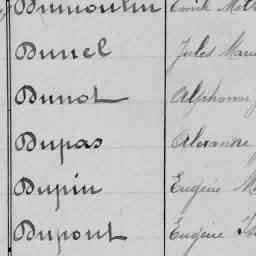 Dumoulin Emile
Dunel Jules
Dunot Alphonse
Dupas Alexandre
Dupin Eugène
Dupont Eugène